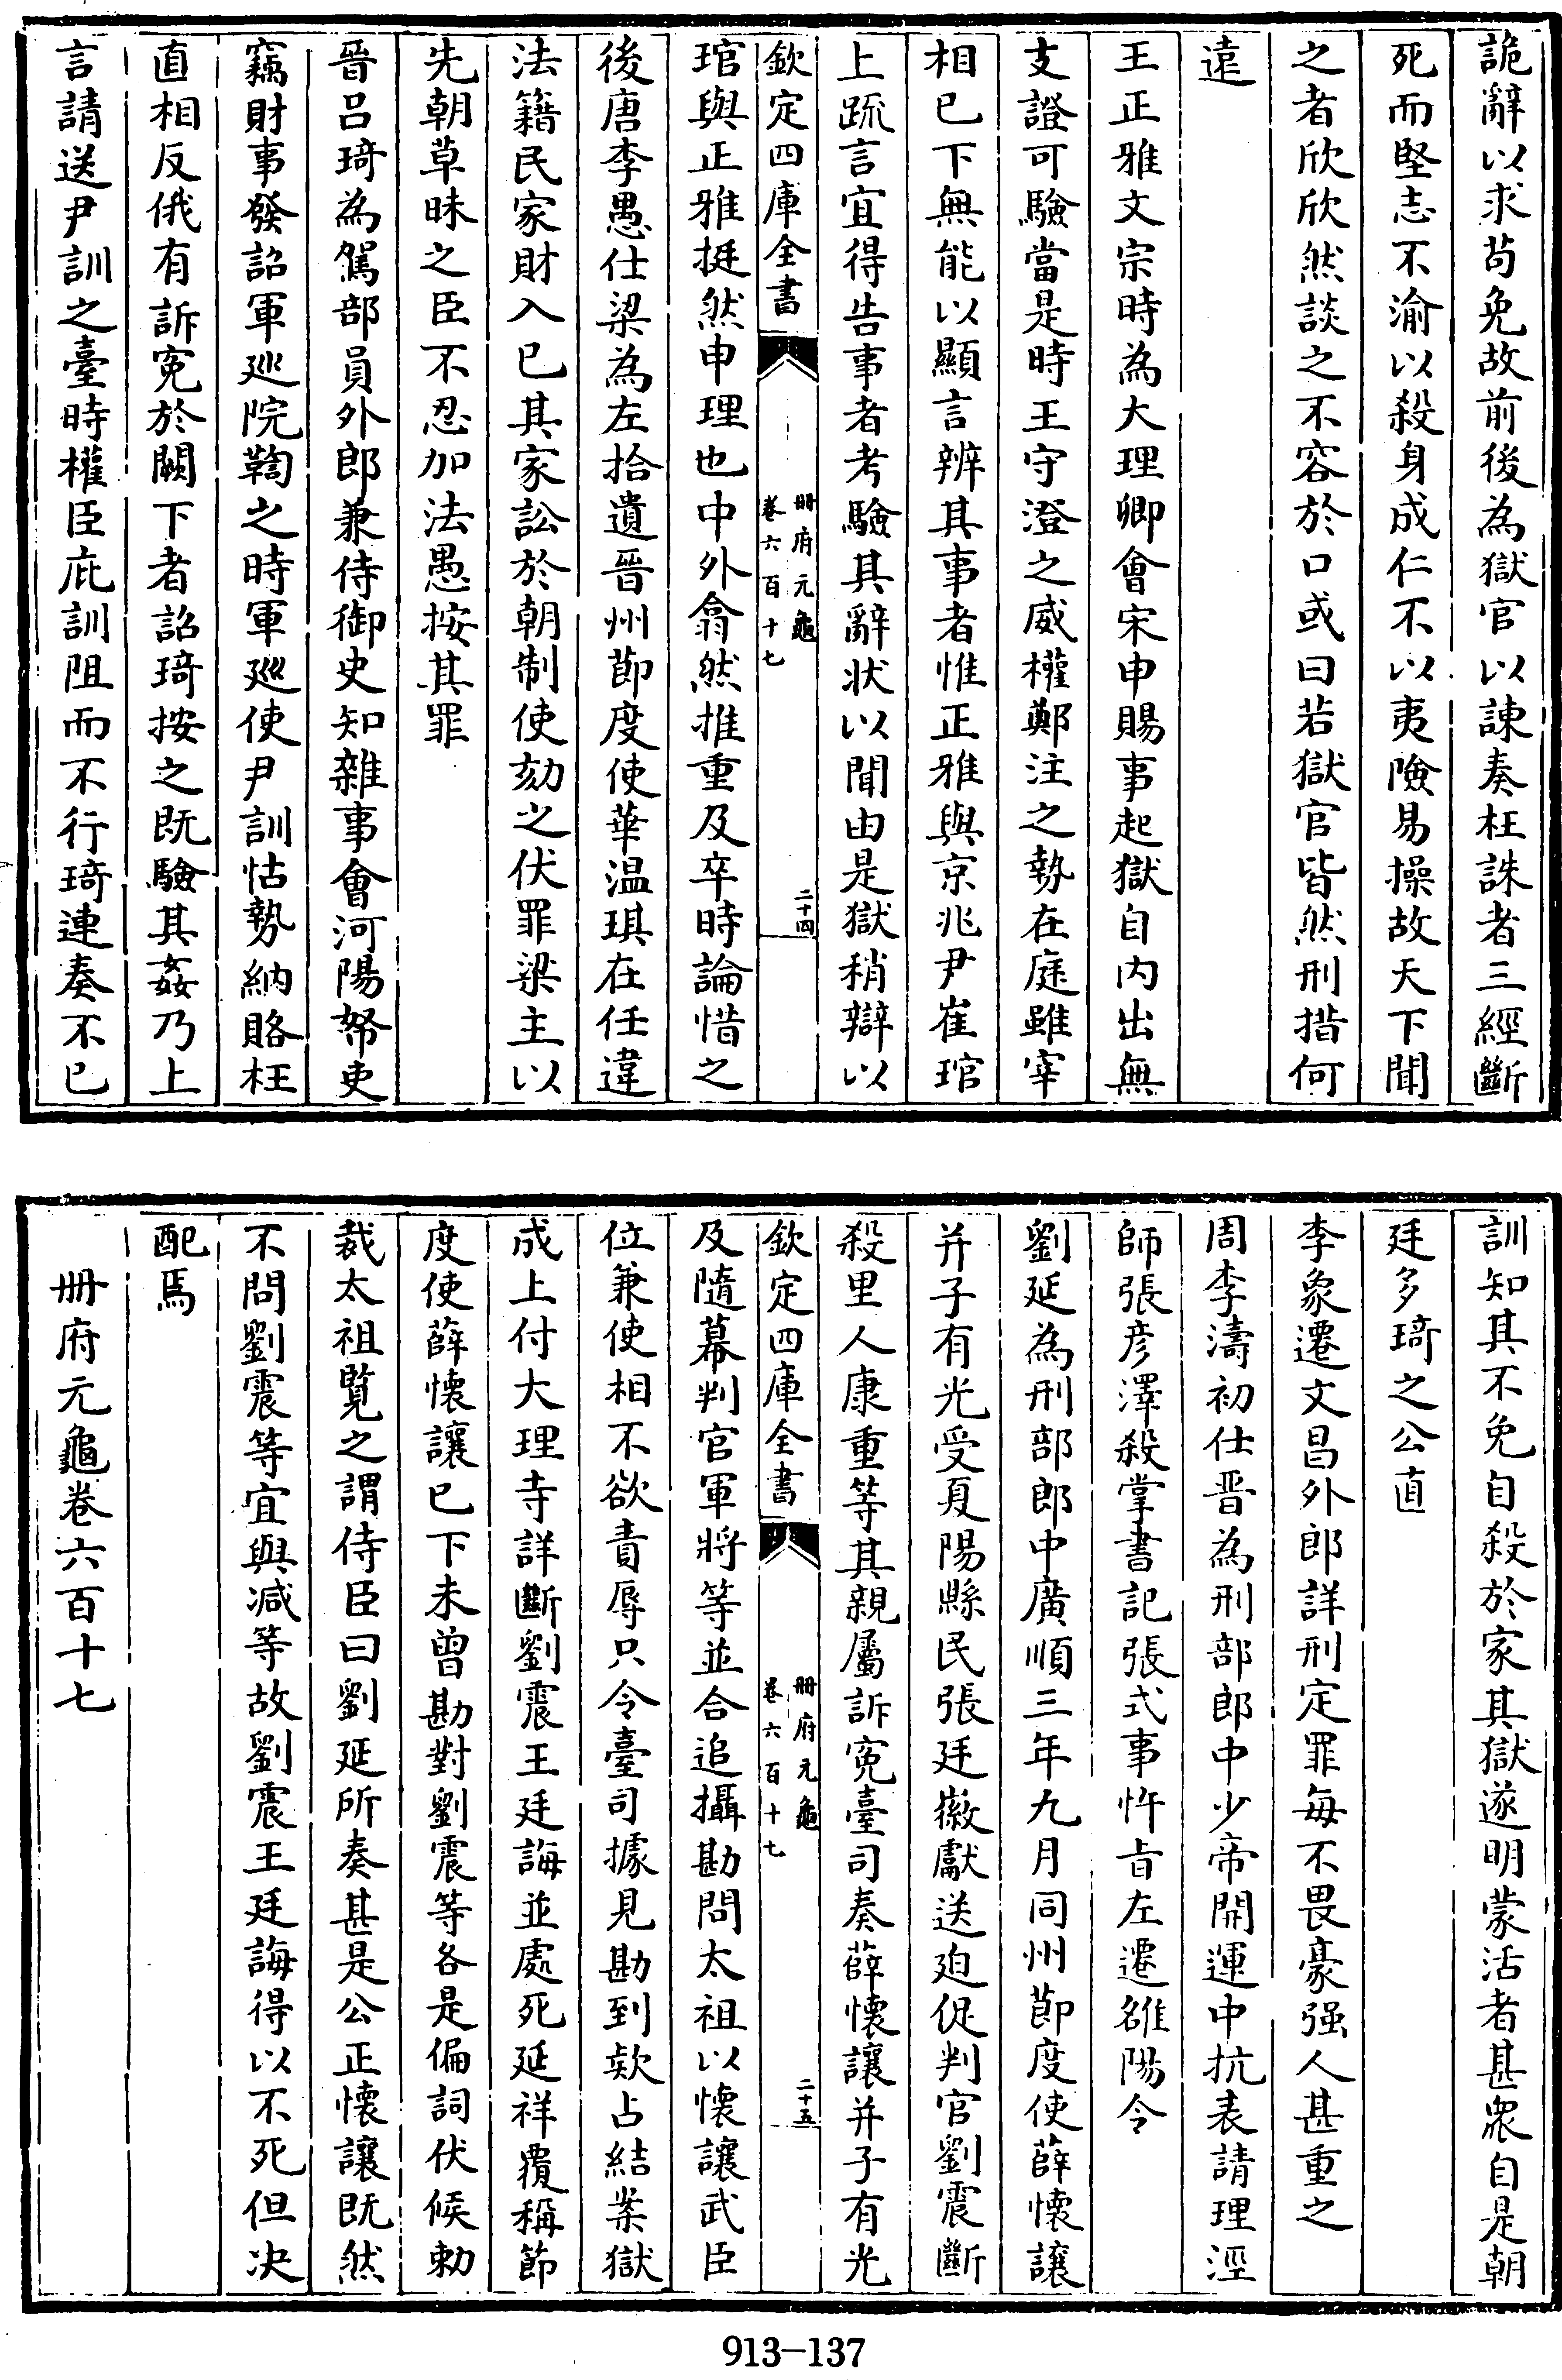 詭辭以求苟免故前後為獄官以諫奏枉誅者三經斷
死而堅志不渝以殺身成仁不以夷險易操故天下聞
之者欣欣然談之不容於口或曰若獄官皆然刑措何
遠
王正雅文宗時為大理卿會宋申賜事起獄自內出無
支證可驗當是時王守澄之威權鄭注之勢在庭雖宰
相已下無能以顯言辨其事者惟正雅與京兆尹崔琯
上疏言宜得告事者考驗其辭狀以聞由是獄稍辯以
欽定四庫全書
冊府元龜
卷六百十七
二十四
琯與正雅挺然申理也中外翕然推重及卒時論惜之
後唐李愚仕梁為左拾遺晉州節度使華温琪在任違
法籍民家財入已其家訟於朝制使劾之伏罪梁主以
先朝草昧之臣不忍加法愚按其罪
晉呂琦為駕部員外郎兼侍御史知雜事會河陽帑吏
竊財事發詔軍廵院鞫之時軍廵使尹訓怙勢納賂枉
直相反俄有訴寃於闕下者詔琦按之既驗其姦乃上
言請送尹訓之臺時權臣庇訓阻而不行琦連奏不已
訓知其不免自殺於家其獄遂明蒙活者甚衆自是朝
廷多琦之公直
李象遷文昌外郎詳刑定罪每不畏豪强人甚重之
周李濤初仕晉為刑部郎中少帝開運中抗表請理涇
師張彥澤殺掌書記張式事忤旨左遷雒陽令
劉延為刑部郎中廣順三年九月同州節度使薛懷讓
并子有光受夏陽縣民張廷徽獻送廹促判官劉震斷
殺里人康重等其親屬訴寃臺司奏薛懷讓并子有光
欽定四庫全書
冊府元龜
卷六百十七
二十五
及隨幕判官軍將等並合追攝勘問太祖以懷讓武臣
位兼使相不欲責辱只令臺司據見勘到欵占結案獄
成上付大理寺詳斷劉震王廷誨並處死延祥覆稱節
度使薛懷讓已下未曾勘對劉震等各是偏詞伏候勅
裁太祖覧之謂侍臣曰劉延所奏甚是公正懷讓既然
不問劉震等宜與減等故劉震王廷誨得以不死但决
配焉
冊府元龜卷六百十七
913-137